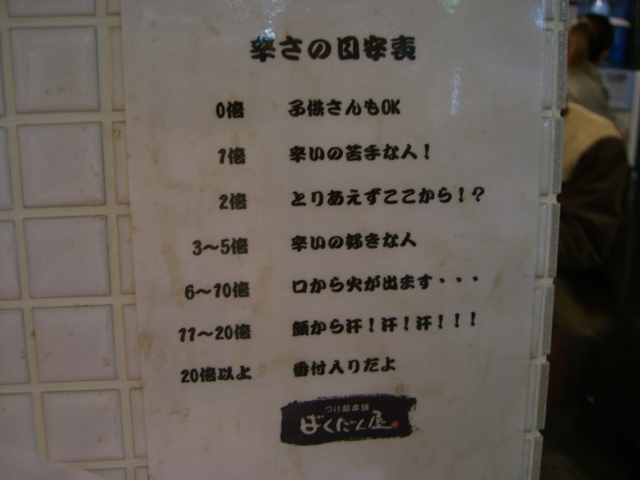 辛さの目安表
0倍 子供さんもOK
1倍 辛いの苦手な人!
2倍 とりあえずここから!?
3～5倍 辛いの好きな人
6～10倍 口から火が出ます・・・
11～20倍 顔から汗!汗!汗!!!
20倍以上 番付入りだよ
つけ麺本舗
ばくだん屋